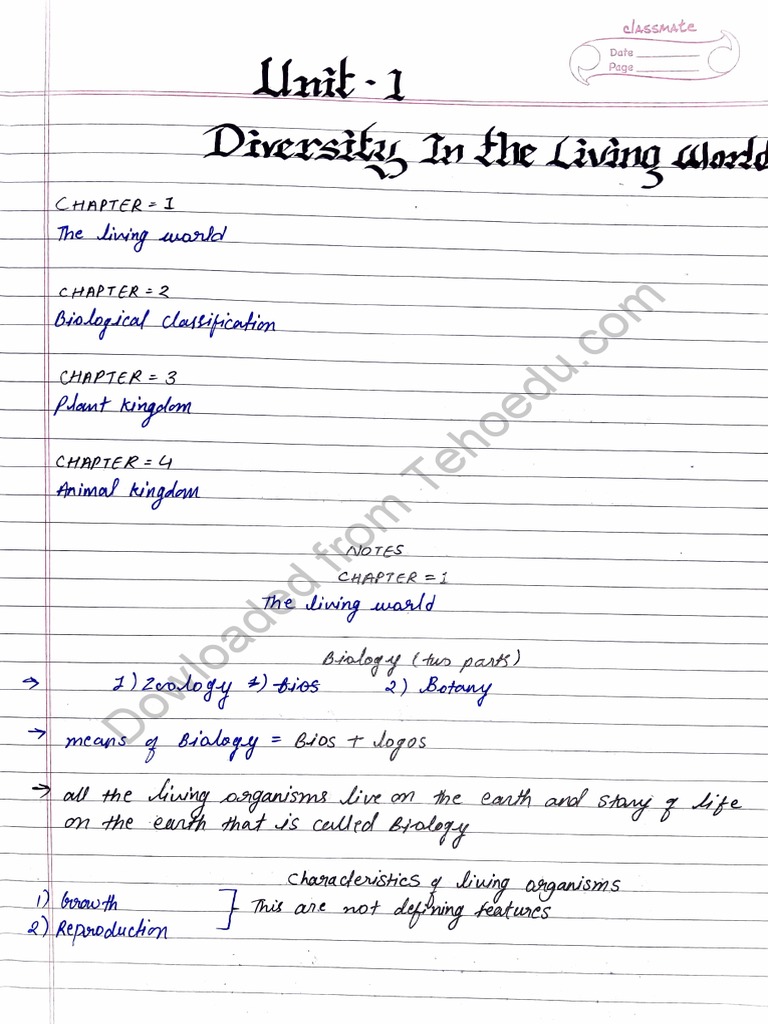 classmate
Date
Page
Unit - 1
Diversity In the Living World
CHAPTER = 1
The living world
CHAPTER = 2
Biological Classification
CHAPTER = 3
Plant kingdom
CHAPTER = 4
Animal kingdom
NOTES
CHAPTER = 1
The living world
Biology (two parts)
→ 1) Zoology 1) Bios 2) Botany
→ means of Biology = Bios + logos
→ all the living organisms live on the earth and stony of life
on the earth that is called Biology
Characteristics of living organisms
1) Growth
This are not defining features
2) Reproduction
Dowloaded from Tehoedu.com